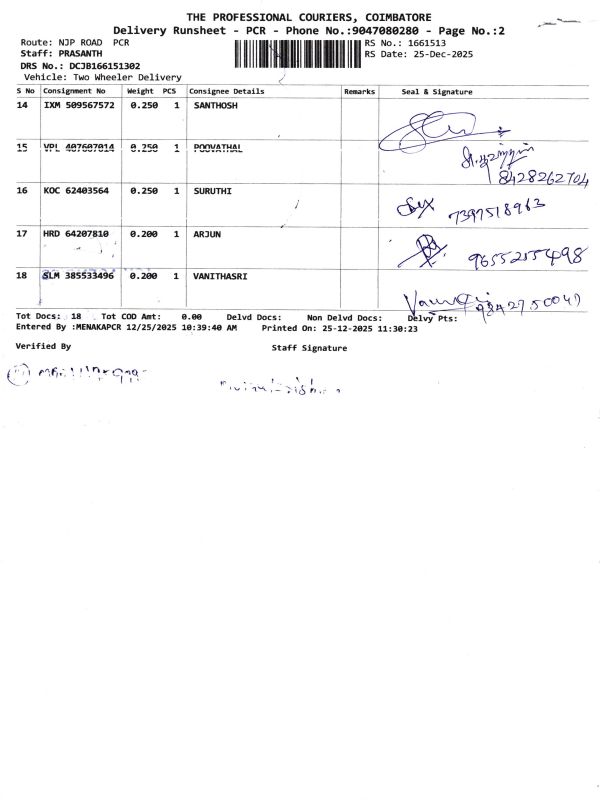 THE PROFESSIONAL COURIERS, COIMBATORE
Delivery Runsheet - PCR - Phone No.:9047080280 - Page No.:2
Route: NJP ROAD PCR
RS No.: 1661513
Staff: PRASANTH
RS Date: 25-Dec-2025
DRS No.: DCJB166151302
Vehicle: Two Wheeler Delivery
S No Consignment No Weight PCS Consignee Details Remarks Seal & Signature
14 IXM 509567572 0.250 1 SANTHOSH
15 VPL 407607014 0.250 1 POOVATHAL
8428262704
16 KOC 62403564 0.250 1 SURUTHI
7397518963
17 HRD 64207810 0.200 1 ARJUN
9655255498
18 SLM 385533496 0.200 1 VANITHASRI
9842750049
Tot Docs: 18 Tot COD Amt: 0.00 Delvd Docs: Non Delvd Docs: Delvy Pts:
Entered By :MENAKAPCR 12/25/2025 10:39:40 AM Printed On: 25-12-2025 11:30:23
Verified By Staff Signature